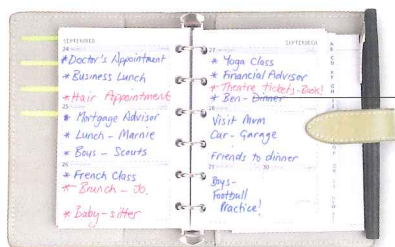 SEPTEMBER
24
*Doctor's Appointment
* Business Lunch
*Hair Appointment
25
* Mortgage Advisor
* Lunch - Marnie
* Boys - Scouts
26
* French Class
* Brunch - Jo.
* Baby-sitter
SEPTEMBER
27
* Yoga Class
* Financial Advisor
* Theatre tickets-Book!
* Ben - Dinner
28
Visit Mum
Car - Garage
Friends to dinner
29
30
Boys -
Football
Practice!